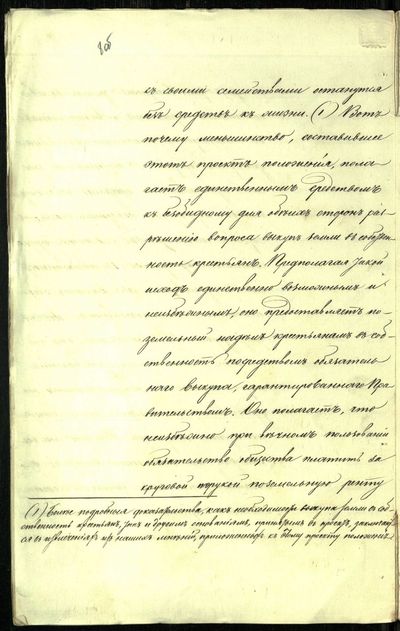 съ своими семействами останутся
безъ средствъ къ жизни. (1) Вотъ
почему меньшинство, составившее
этотъ проектъ положенія, пола-
гаетъ единственнымъ средствомъ
къ безобидному для обѣихъ сторонъ раз-
рѣшенію вопроса выкупъ земли въ собствен-
ность крестьянъ. Предполагая такой
исходъ единственно возможнымъ и
неизбѣжнымъ, оно предоставляетъ по-
земельный надѣлъ крестьянамъ въ соб-
ственность посредствомъ обязатель-
наго выкупа, гарантированнаго Пра-
вительствомъ. Оно полагаетъ, что
неизбѣжно при вѣчномъ пользованіи
обязательство общества платить за
круговой порукой поземельную ренту
(1) Болѣе подробныя доказательства, какъ необходимости выкупа земли въ соб-
ственность крестьянъ, такъ и другимъ основаніямъ, принятымъ въ проектѣ, заключают-
ся въ извлеченіяхъ изъ нашихъ мнѣній, приложенныхъ къ проекту положенія